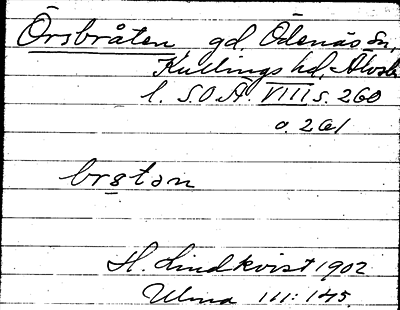 Örsbråten, gd, Ödenäs sn,
Kullings hd, Älvsb.
l. S.O.Ä. VIII s. 260
o. 261
brstən
H. Lindkvist 1902
Ulma 111:145.